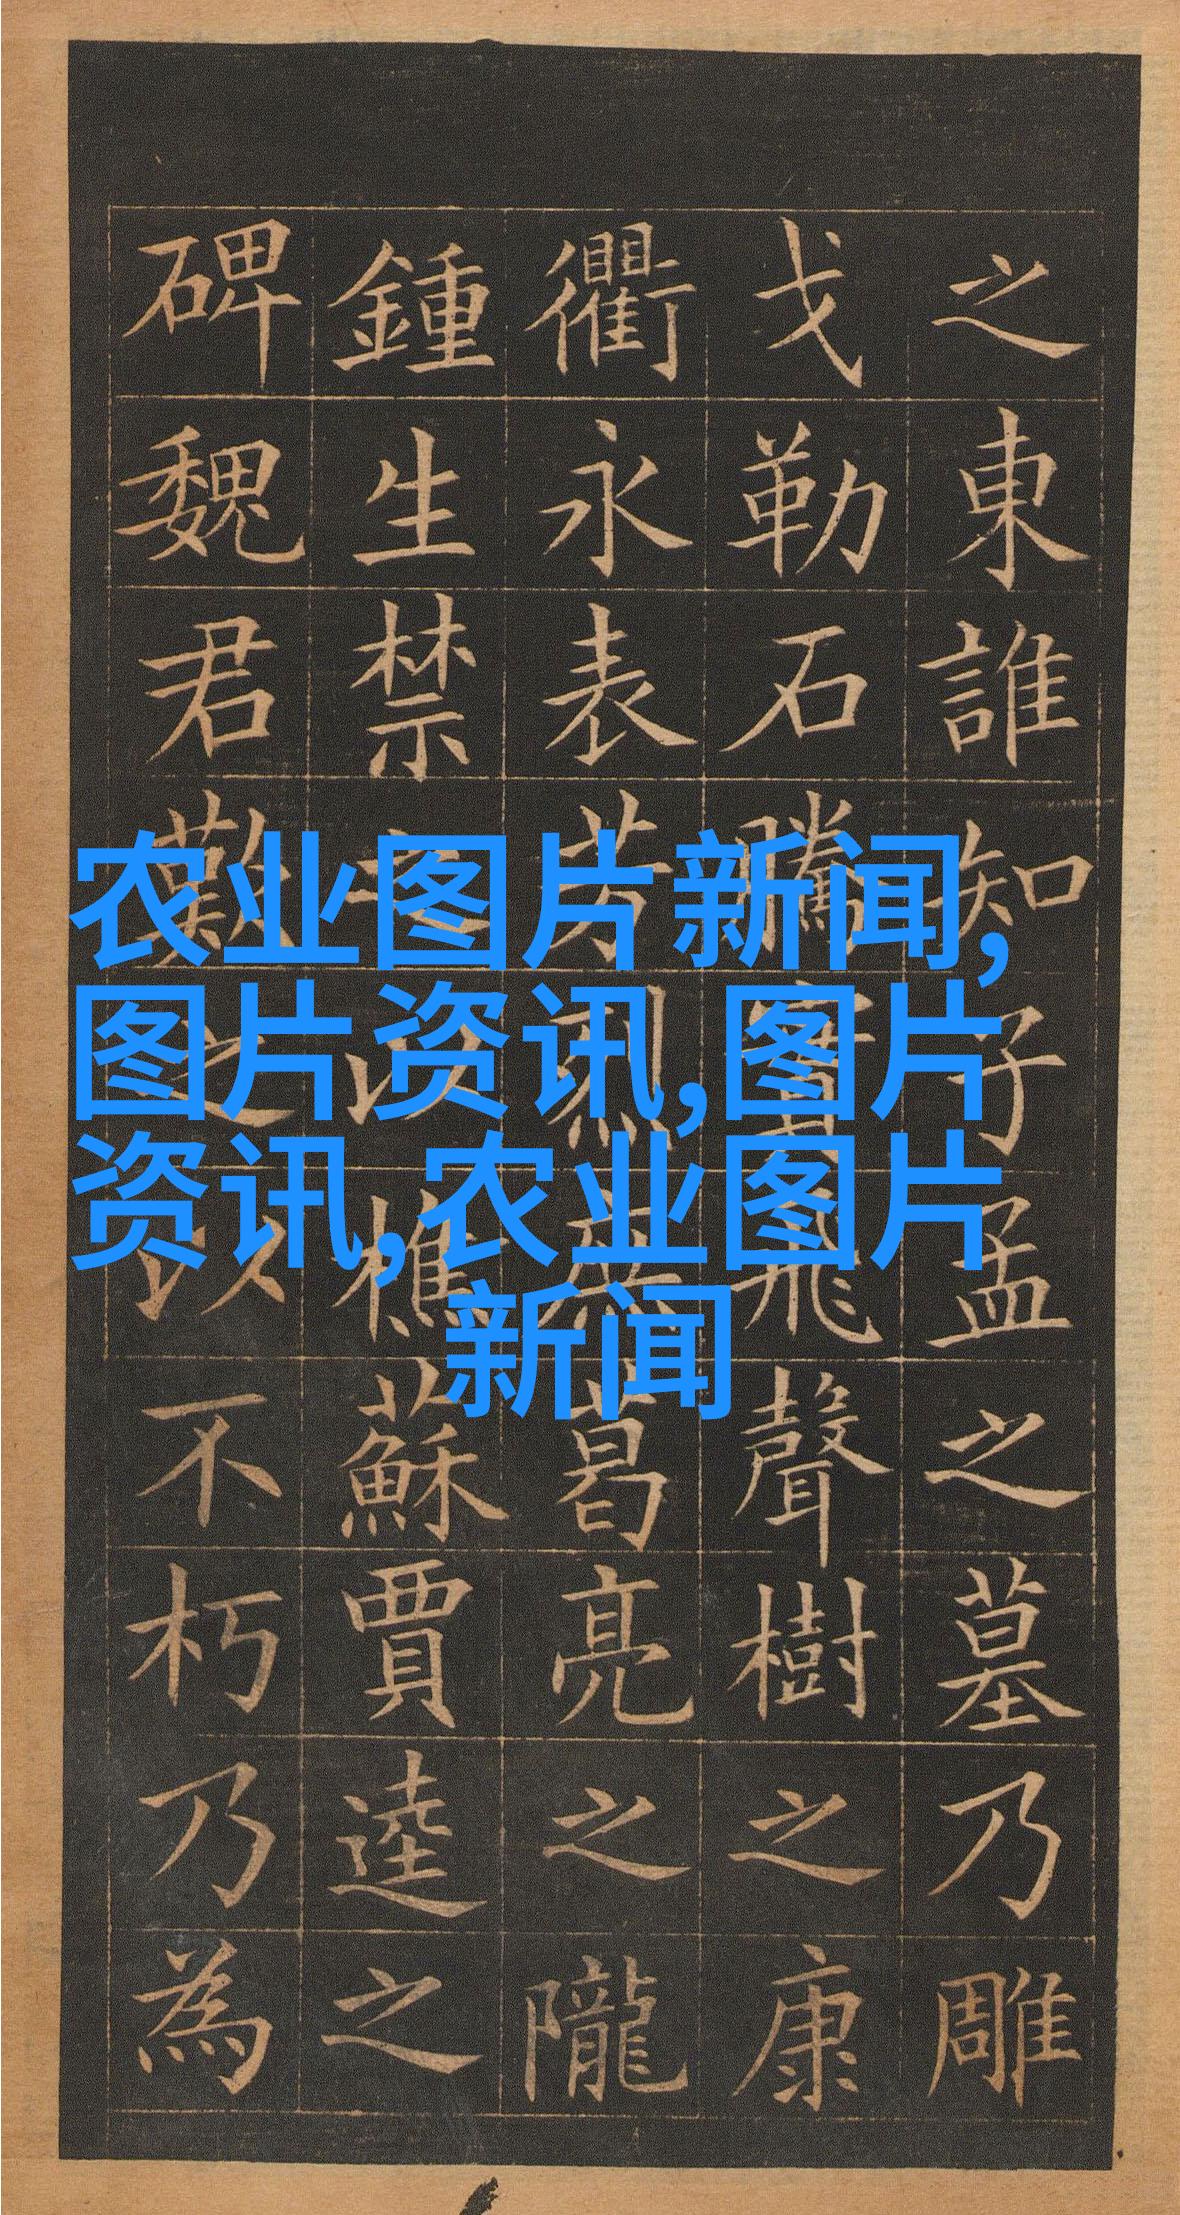 之東誰知子孟之墓乃雕
戈勒石騰實飛聲樹之康
衢永表芳烈庶葛亮之隴
鍾生禁之以樵蘇賈逵之
碑魏君歎之以不朽乃為
农业图片新闻,
图片资讯,图片
资讯,农业图片
新闻